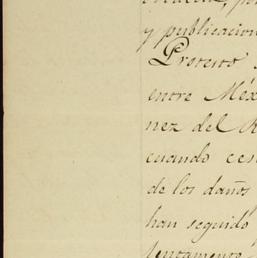 y publicacion
Protesto
entre Méx
nez del R
cuando ces
de los daños
han seguido
lentamente